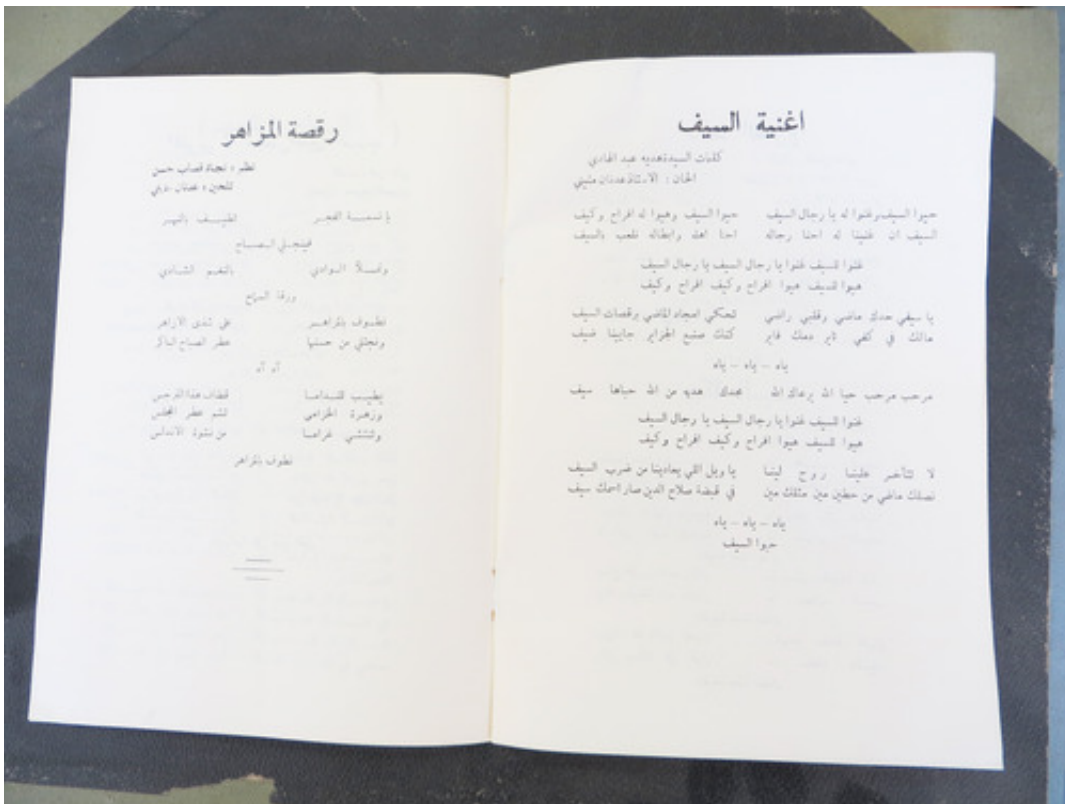 اغنية السيف
كلمات السيدة هديه عبد الهادي
الحان : الاستاذ عدنان منيني
حيوا السيف وغنوا له يا رجال السيف حيوا السيف وهيوا له افراح وكيف
السيف ان غنينا له احنا رجاله احنا اهله وابطاله نلعب بالسيف
غنوا للسيف غنوا يا رجال السيف يا رجال السيف
هيوا للسيف هيوا افراح وكيف افراح وكيف
يا سيفي حدك ماضي وقلبي راضي تحكي امجاد الماضي برقصات السيف
مالك في كفي ثاير دمك فاير كنك صنيع الجزاير جايينا ضيف
ياه – ياه – ياه
مرحب مرحب حيا الله يرعاك الله مجدك هديه من الله حباها سيف
غنوا للسيف غنوا يا رجال السيف يا رجال السيف
هيوا للسيف هيوا افراح وكيف افراح وكيف
لا تتأخر علينا روح لينا يا ويل اللي يعادينا من ضرب السيف
نصلك ماضي من حطين مين مثلك مين في قبضة صلاح الدين صار اسمك سيف
ياه – ياه – ياه
حيوا السيف
رقصة المزاهر
نظم : نجاة قصاب حسن
تلحين : عدنان
يا نسمة الفجر لطيف بالنهر
فينجلي الصباح
ونملأ الوادي بالنغم الشادي
ورقة المراح
نطوف بالمزاهر على شذى الازاهر
ونجتلي من حسنها عطر الصباح الباكر
آه آه
يطيب للندامى قطاف هذا النرجس
وزهرة الخزامى لشم عطر المجلس
وننتشي غراما من نشوة الاندلس
نطوف بالمزاهر